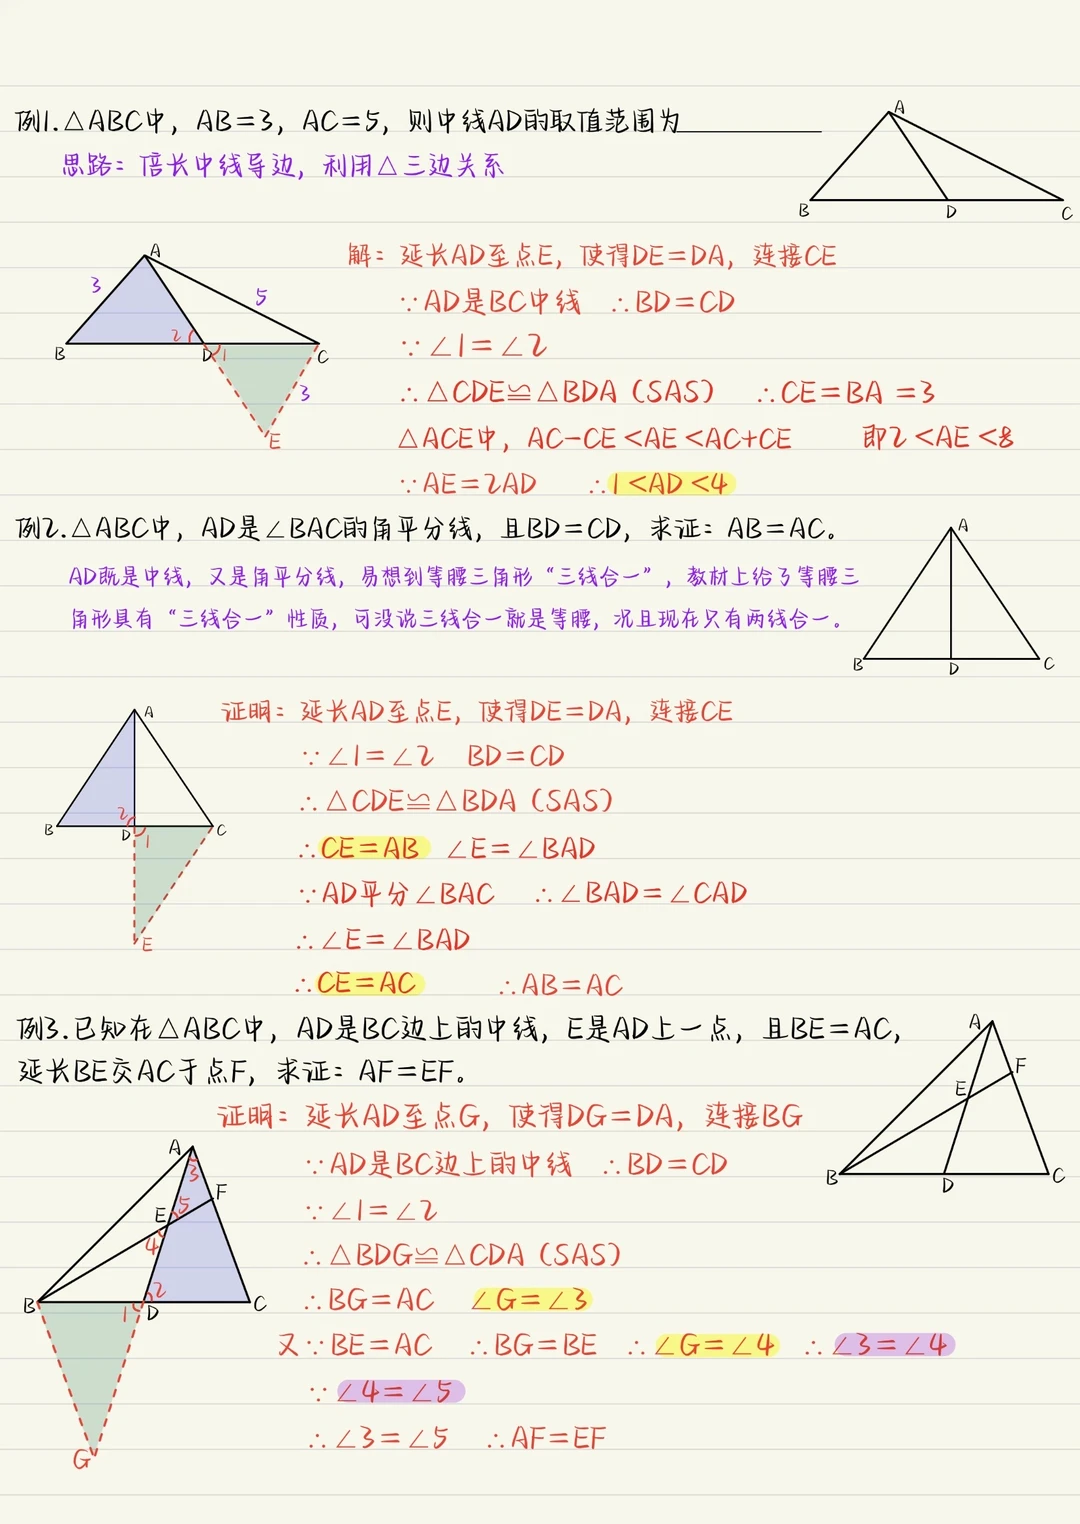 例1.△ABC中，AB=3，AC=5，则中线AD的取值范围为
思路：倍长中线导边，利用△三边关系
A
B
D
C
A
3
5
B
2
D
1
C
3
E
解：延长AD至点E，使得DE=DA，连接CE
∵AD是BC中线 ∴BD=CD
∵∠1=∠2
∴△CDE≌△BDA（SAS） ∴CE=BA=3
△ACE中，AC-CE<AE<AC+CE 即2<AE<8
∵AE=2AD ∴1<AD<4
例2.△ABC中，AD是∠BAC的角平分线，且BD=CD，求证：AB=AC。
AD既是中线，又是角平分线，易想到等腰三角形“三线合一”，教材上给了等腰三
角形具有“三线合一”性质，可没说三线合一就是等腰，况且现在只有两线合一。
A
B
D
C
A
B
2
D
1
C
E
证明：延长AD至点E，使得DE=DA，连接CE
∵∠1=∠2 BD=CD
∴△CDE≌△BDA（SAS）
∴CE=AB ∠E=∠BAD
∵AD平分∠BAC ∴∠BAD=∠CAD
∴∠E=∠BAD
∴CE=AC ∴AB=AC
例3.已知在△ABC中，AD是BC边上的中线，E是AD上一点，且BE=AC，
延长BE交AC于点F，求证：AF=EF。
A
F
E
B
D
C
A
3
F
5
E
4
2
B
1
D
C
G
证明：延长AD至点G，使得DG=DA，连接BG
∵AD是BC边上的中线 ∴BD=CD
∵∠1=∠2
∴△BDG≌△CDA（SAS）
∴BG=AC ∠G=∠3
又∵BE=AC ∴BG=BE ∴∠G=∠4 ∴∠3=∠4
∵∠4=∠5
∴∠3=∠5 ∴AF=EF